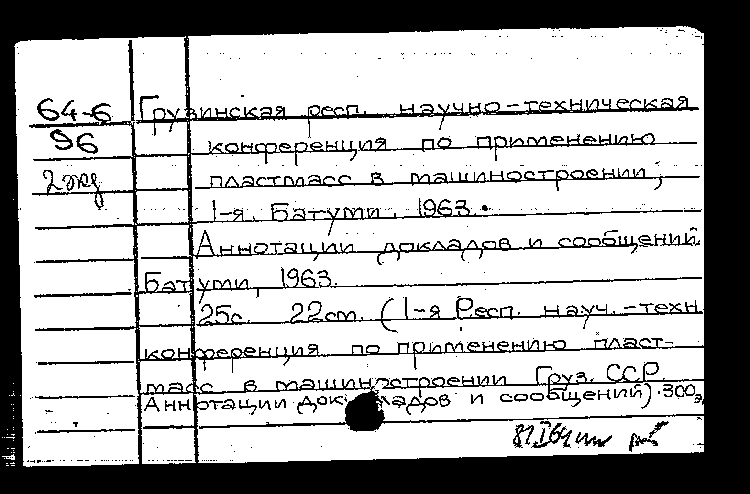 64-6 Грузинская респ. научно-техническая
96 конференция по применению
2 экз пластмасс в машиностроении,
1-я. Батуми. 1963.
Аннотации докладов и сообщений.
Батуми, 1963.
25с. 22см. (1-я Респ. науч.-техн
конференция по применению пласт-
масс в машиностроении Груз. ССР
Аннотации докладов и сообщений). 300э